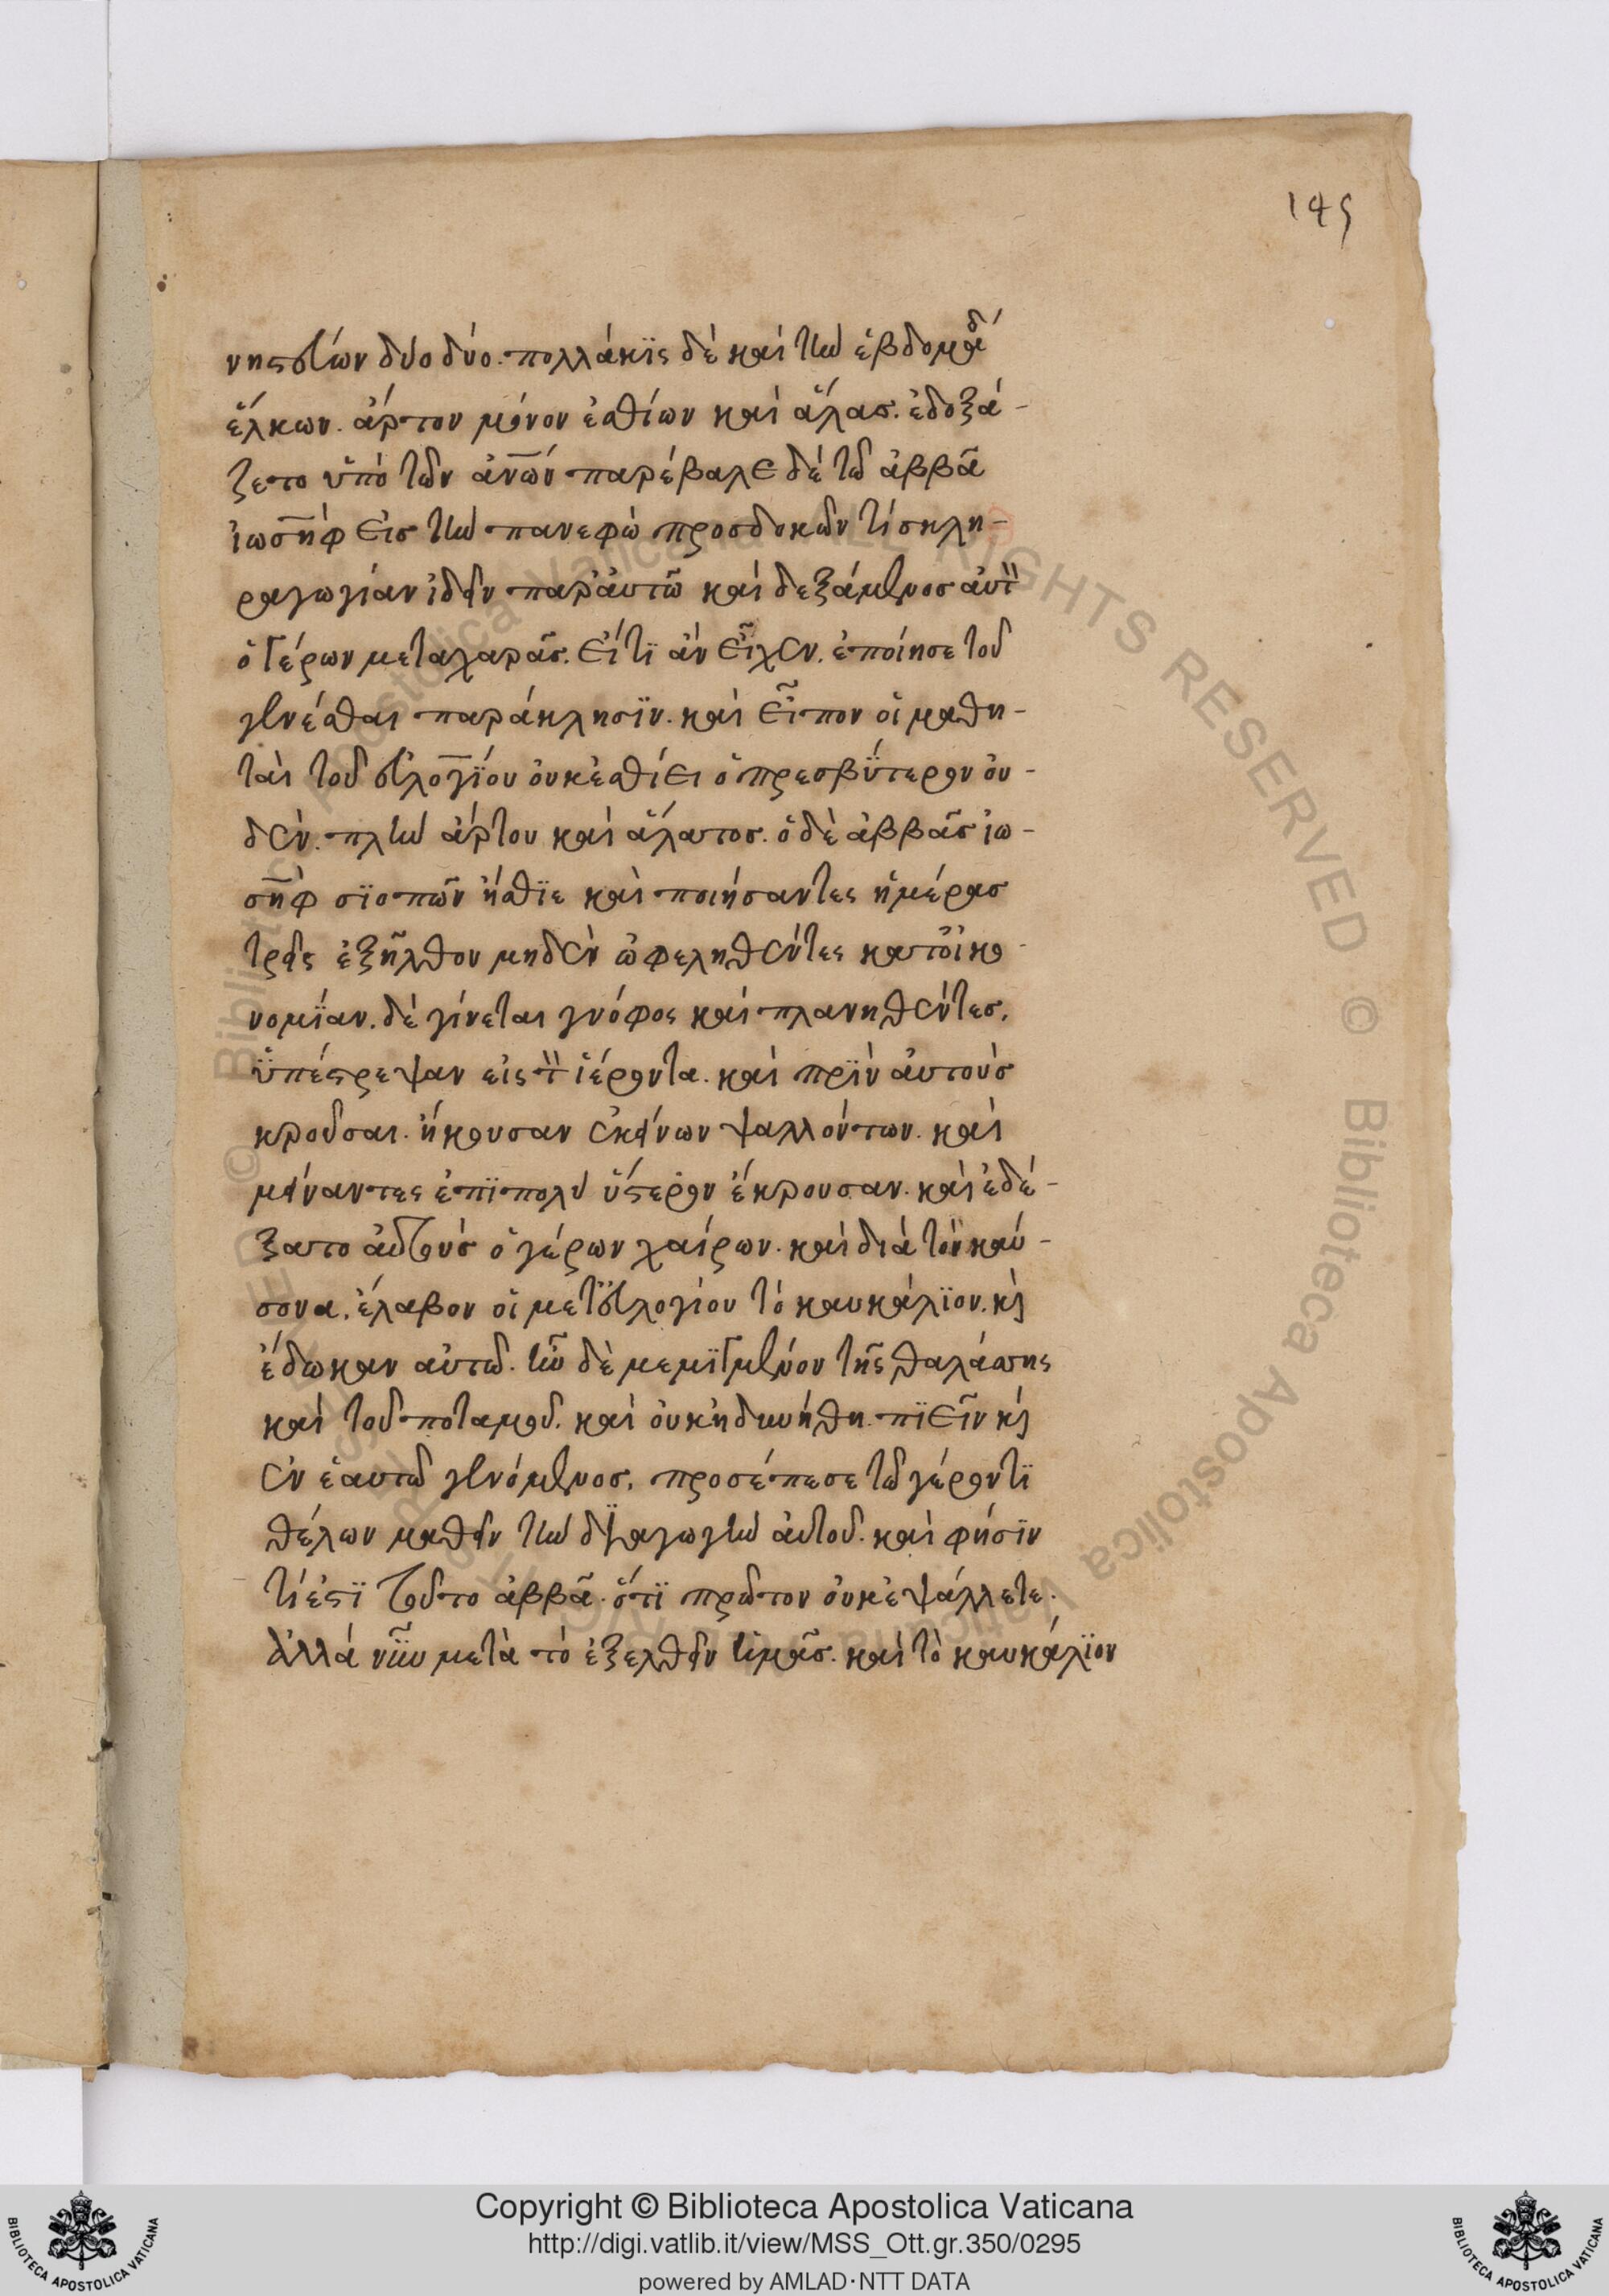 145
νηστεύων δύο δύο. πολλάκϊς δὲ καὶ τὴν ἑβδομάδα
ἕλκων. ἄρτον μόνον ἐσθίων καὶ ἅλας. ἐδοξά-
ζετο ὑπὸ τῶν ἀν̅ω̅ν παρέβαλε δὲ τῶ ἀββᾶ
ἰωσὴφ εἰς τὴν πανεφὼ προσδοκῶν τί σκλη-
ραγωγίαν ἰδεῖν παρ' ἀυτῶ καὶ δεξάμενος αὐτὸν
ὁ γέρων μετα χαρᾶς. εἴ τϊ ἂν εἶχεν. ἐποίησε τοῦ
γενέσθαι παράκλησϊν. καὶ εἶπον οἱ μαθη-
ταὶ τοῦ ἐυλογΐου ὀυκ ἐσθίει ὁ πρεσβΰτερον ὀυ-
δὲν. πλὴν ἄρτου καὶ ἅλατος. ὁ δὲ ἀββᾶς ἰω-
σὴφ σϊοπῶν ἤσθϊε καὶ ποιήσαντες ἡμέρας
τρεῖς ἐξῆλθον μηδὲν ὠφεληθέντες κατ' ὀικο
νομΐαν. δὲ γίνεται γνόφος καὶ πλανηθέντες.
ὑπέστρεψαν εἰς τὸν γέροντα. καὶ πρϊν ἀυτοὺς
κροῦσαι. ἤκουσαν ἐκείνων ψαλλόντων. καὶ
μείναντες ἐπϊπολὺ ὕστερον ἔκρουσαν. καὶ ἐδέ-
ξατο ἀυτοὺς ὁ γέρων χαίρων. καὶ διὰ τὸν καύ-
σονα. ἔλαβον οἱ μετ' ἐυλογίου τὸ καυκάλϊον. κὶ
ἔδωκαν αὐτῶ. ἦν δὲ μεμϊγμένον τῆς θαλάσσης
καὶ τοῦ ποταμοῦ. καὶ ὀυκ ἠδυνήθη. πϊεῖν κὶ
ἐν ἑαυτῶ γενόμενος. προσέπεσε τῶ γέροντϊ
θέλων μαθεῖν τὴν διαγωγὴν ἀυτοῦ. καὶ φήσϊν
τί ἐστϊ τοῦτο ἀββᾶ. ὅτϊ πρῶτον ὀυκ ἐψάλλετε.
ἀλλὰ νῦν μετὰ τὸ ἐξελθεῖν ὑμᾶς. καὶ τὸ καυκάλϊον
Copyright © Biblioteca Apostolica Vaticana
http://digi.vatlib.it/view/MSS_Ott.gr.350/0295
powered by AMLAD·NTT DATA